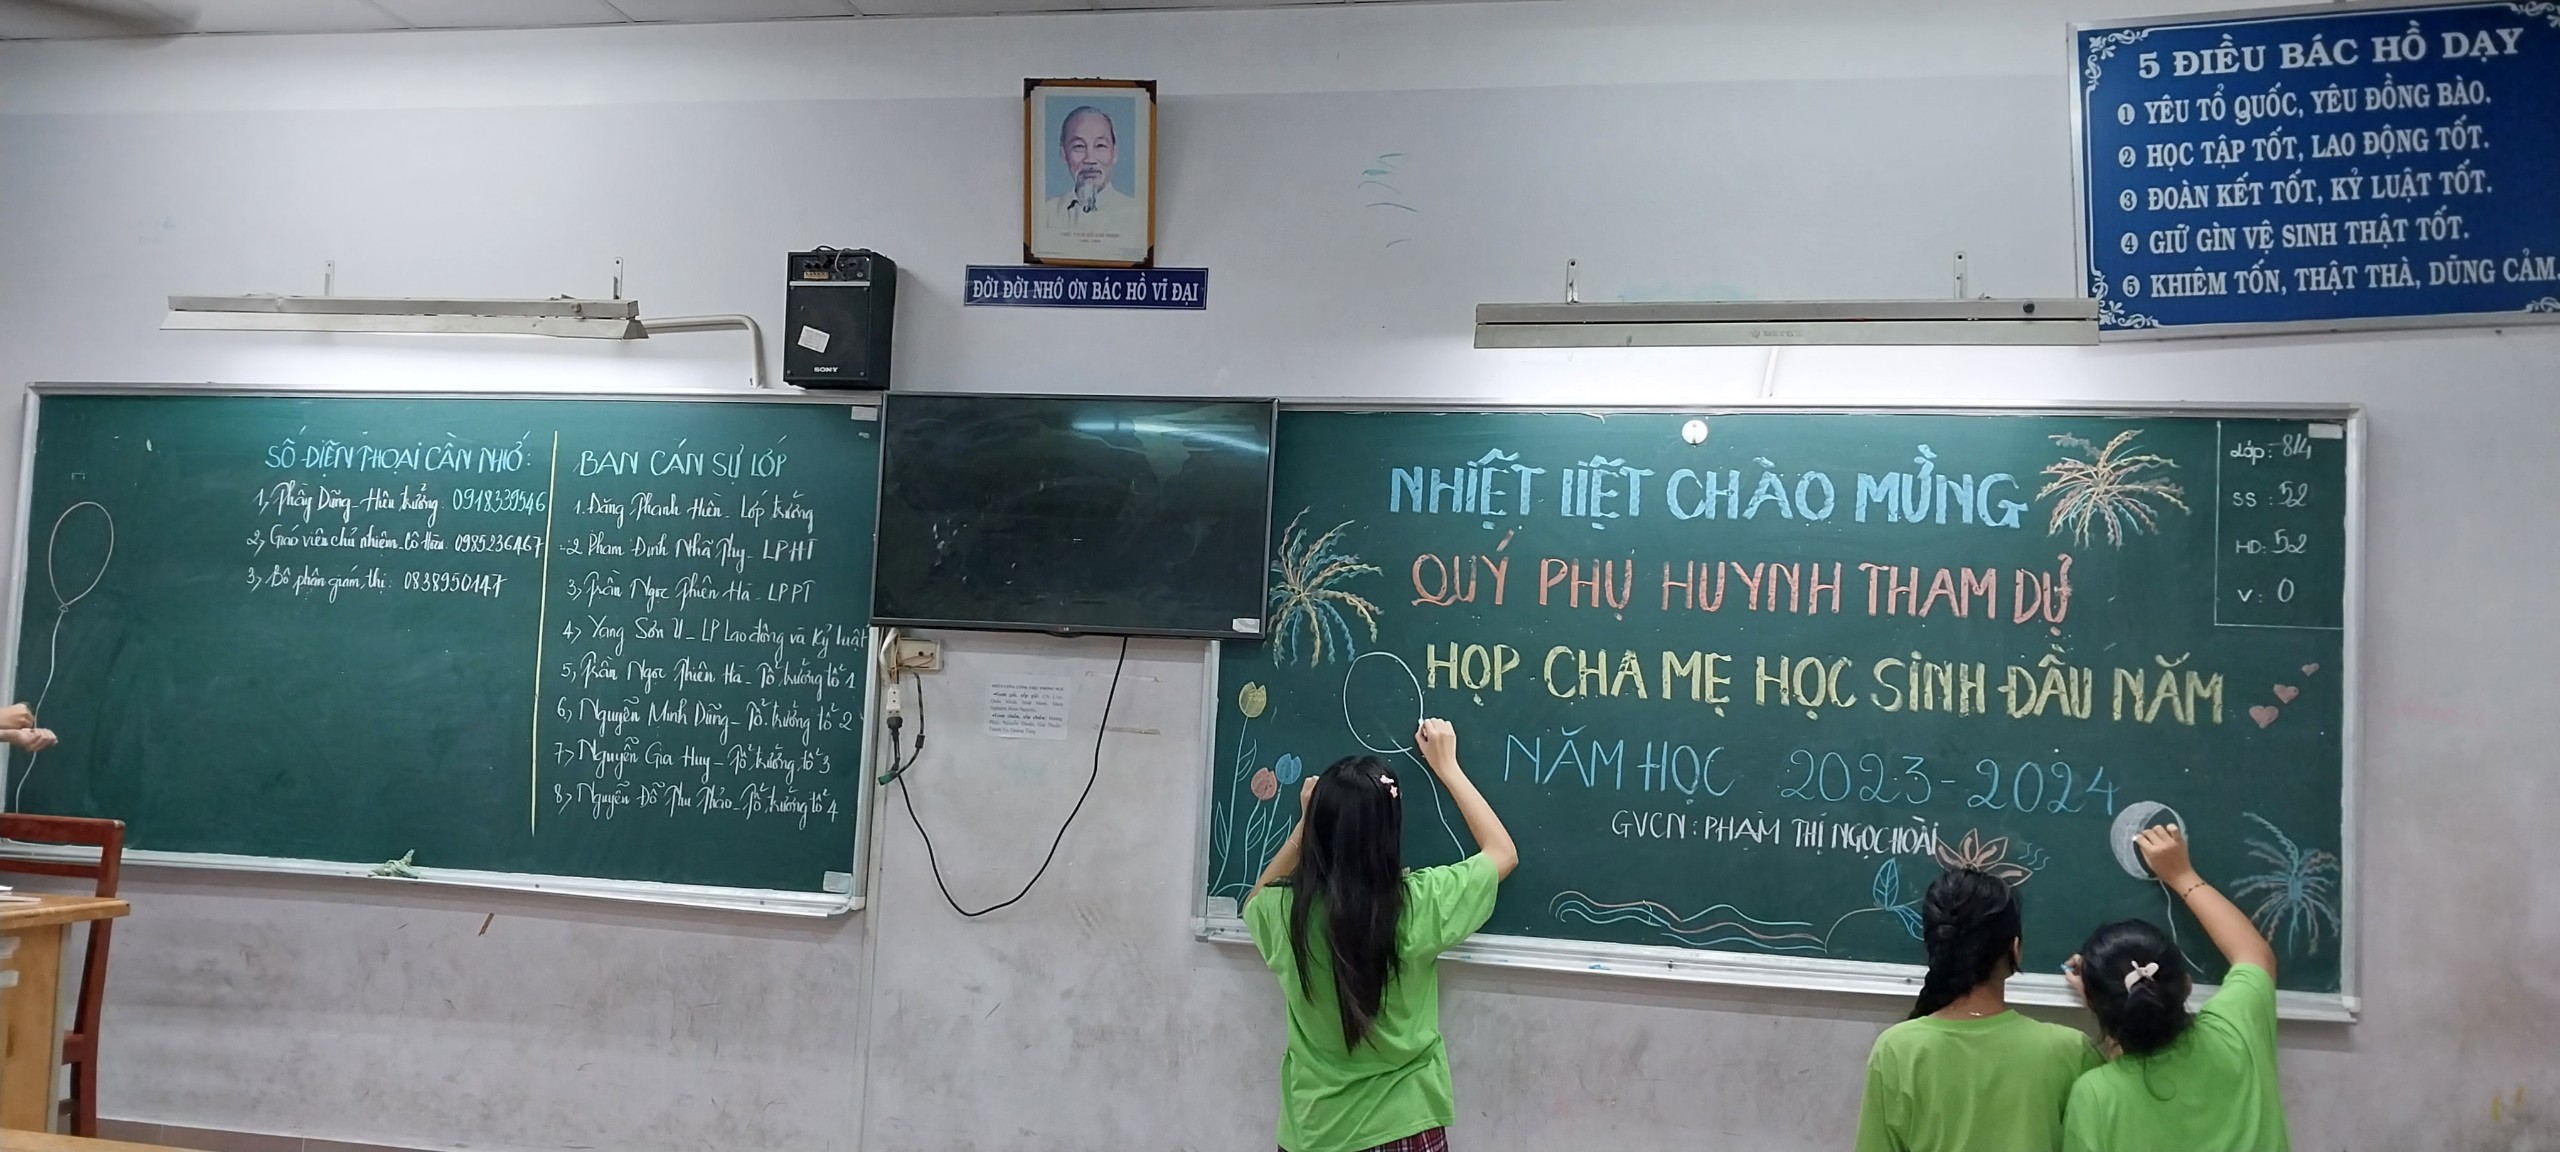 5 ĐIỀU BÁC HỒ DẠY
1 YÊU TỔ QUỐC, YÊU ĐỒNG BÀO.
2 HỌC TẬP TỐT, LAO ĐỘNG TỐT.
3 ĐOÀN KẾT TỐT, KỶ LUẬT TỐT.
4 GIỮ GÌN VỆ SINH THẬT TỐT.
5 KHIÊM TỐN, THẬT THÀ, DŨNG CẢM.
ĐỜI ĐỜI NHỚ ƠN BÁC HỒ VĨ ĐẠI
SONY
SỐ ĐIỆN THOẠI CẦN NHỚ:
1, Thầy Dũng - Hiệu trưởng: 0918339546
2, Giáo viên chủ nhiệm - Cô Hoài: 0985236467
3, Bộ phận giám thị: 0838950147
BAN CÁN SỰ LỚP
1. Đăng Thanh Hiền - Lớp trưởng
2 Phạm Đinh Nhã Thy - LPHT
3, Trần Ngọc Thiên Hà - LPPT
4, Yang Sơn U - LP Lao động và Kỷ luật
5, Trần Ngọc Thiên Hà - Tổ trưởng tổ 1
6, Nguyễn Minh Dũng - Tổ trưởng tổ 2
7, Nguyễn Gia Huy - Tổ trưởng tổ 3
8, Nguyễn Đỗ Thu Thảo - Tổ trưởng tổ 4
NHIỆT LIỆT CHÀO MỪNG
QUÝ PHỤ HUYNH THAM DỰ
HỌP CHA MẸ HỌC SINH ĐẦU NĂM
NĂM HỌC 2023-2024
GVCN: PHẠM THỊ NGỌC HOÀI
Lớp: 8/4
SS: 52
HD: 52
V: 0